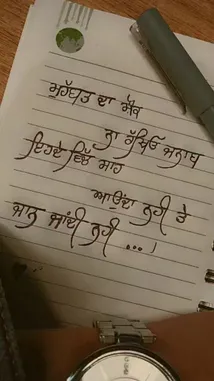 ਮੁਹੱਬਤ ਦਾ ਸ਼ੌਕ
ਨਾ ਰੱਖਿਓ ਜਨਾਬ
ਇਹਦੇ ਵਿੱਚ ਸਾਹ
ਆਉਂਦਾ ਨਹੀਂ ਤੇ
ਜਾਨ ਜਾਂਦੀ ਨਹੀਂ ...।